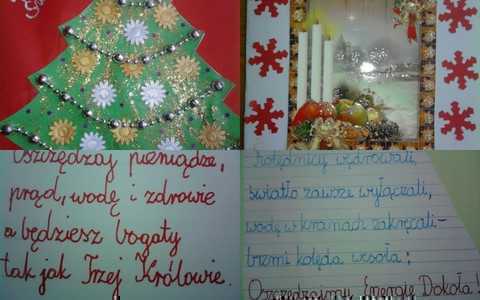 Oszczędzaj pieniądze,
prąd, wodę i zdrowie
a będziesz bogaty
tak jak Trzej Królowie.
Kolędnicy wędrowali,
światło zawsze wyłączali,
wodę w kranach zakręcali-
brzmi kolęda wesoła;
Oszczędzajmy Energię Dokoła!